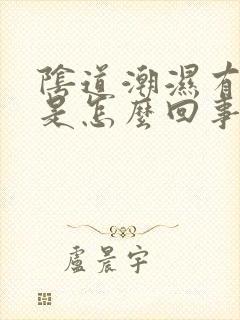 陰道潮濕有
是怎麼回事
盧晨宇